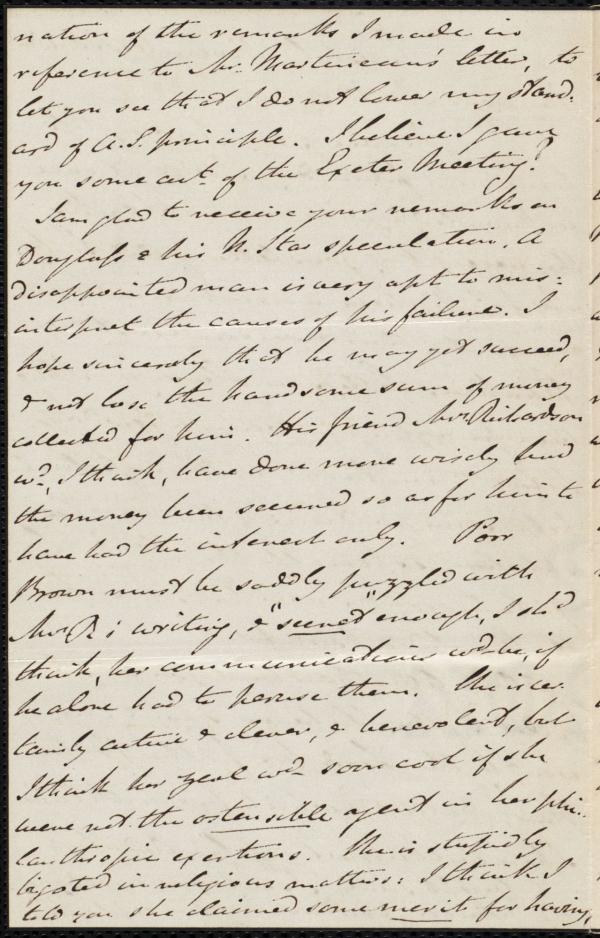 nation of the remarks I made in
reference to Mr. Martineau's letter, to
let you see that I do not lower my stand-
ard of A.S. principle. I believe I gave
you some acct. of the Exeter Meeting?
I am glad to receive your remarks on
Douglass & his N. Star speculation. A
disappointed man is very apt to mis:
interpret the causes of his failure. I
hope sincerely that he may yet succeed,
& not lose the handsome sum of money
collected for him. His friend Mrs. Richardson
wd., I think, have done more wisely had
the money been secured so as for him to
have had the interest only. Poor
Brown must be sadly puzzled with
Mrs R's writing, & "secret" enough, I shd
think, her communications wd be, if
he alone had to peruse them. She is cer-
tainly active & clever, & benevolent, but
I think her zeal wd soon cool if she
were not the ostensible agent in her phi-
lanthropic exertions. She is stupidly
bigoted in religious matters: I think I
told you she claimed some merit for having